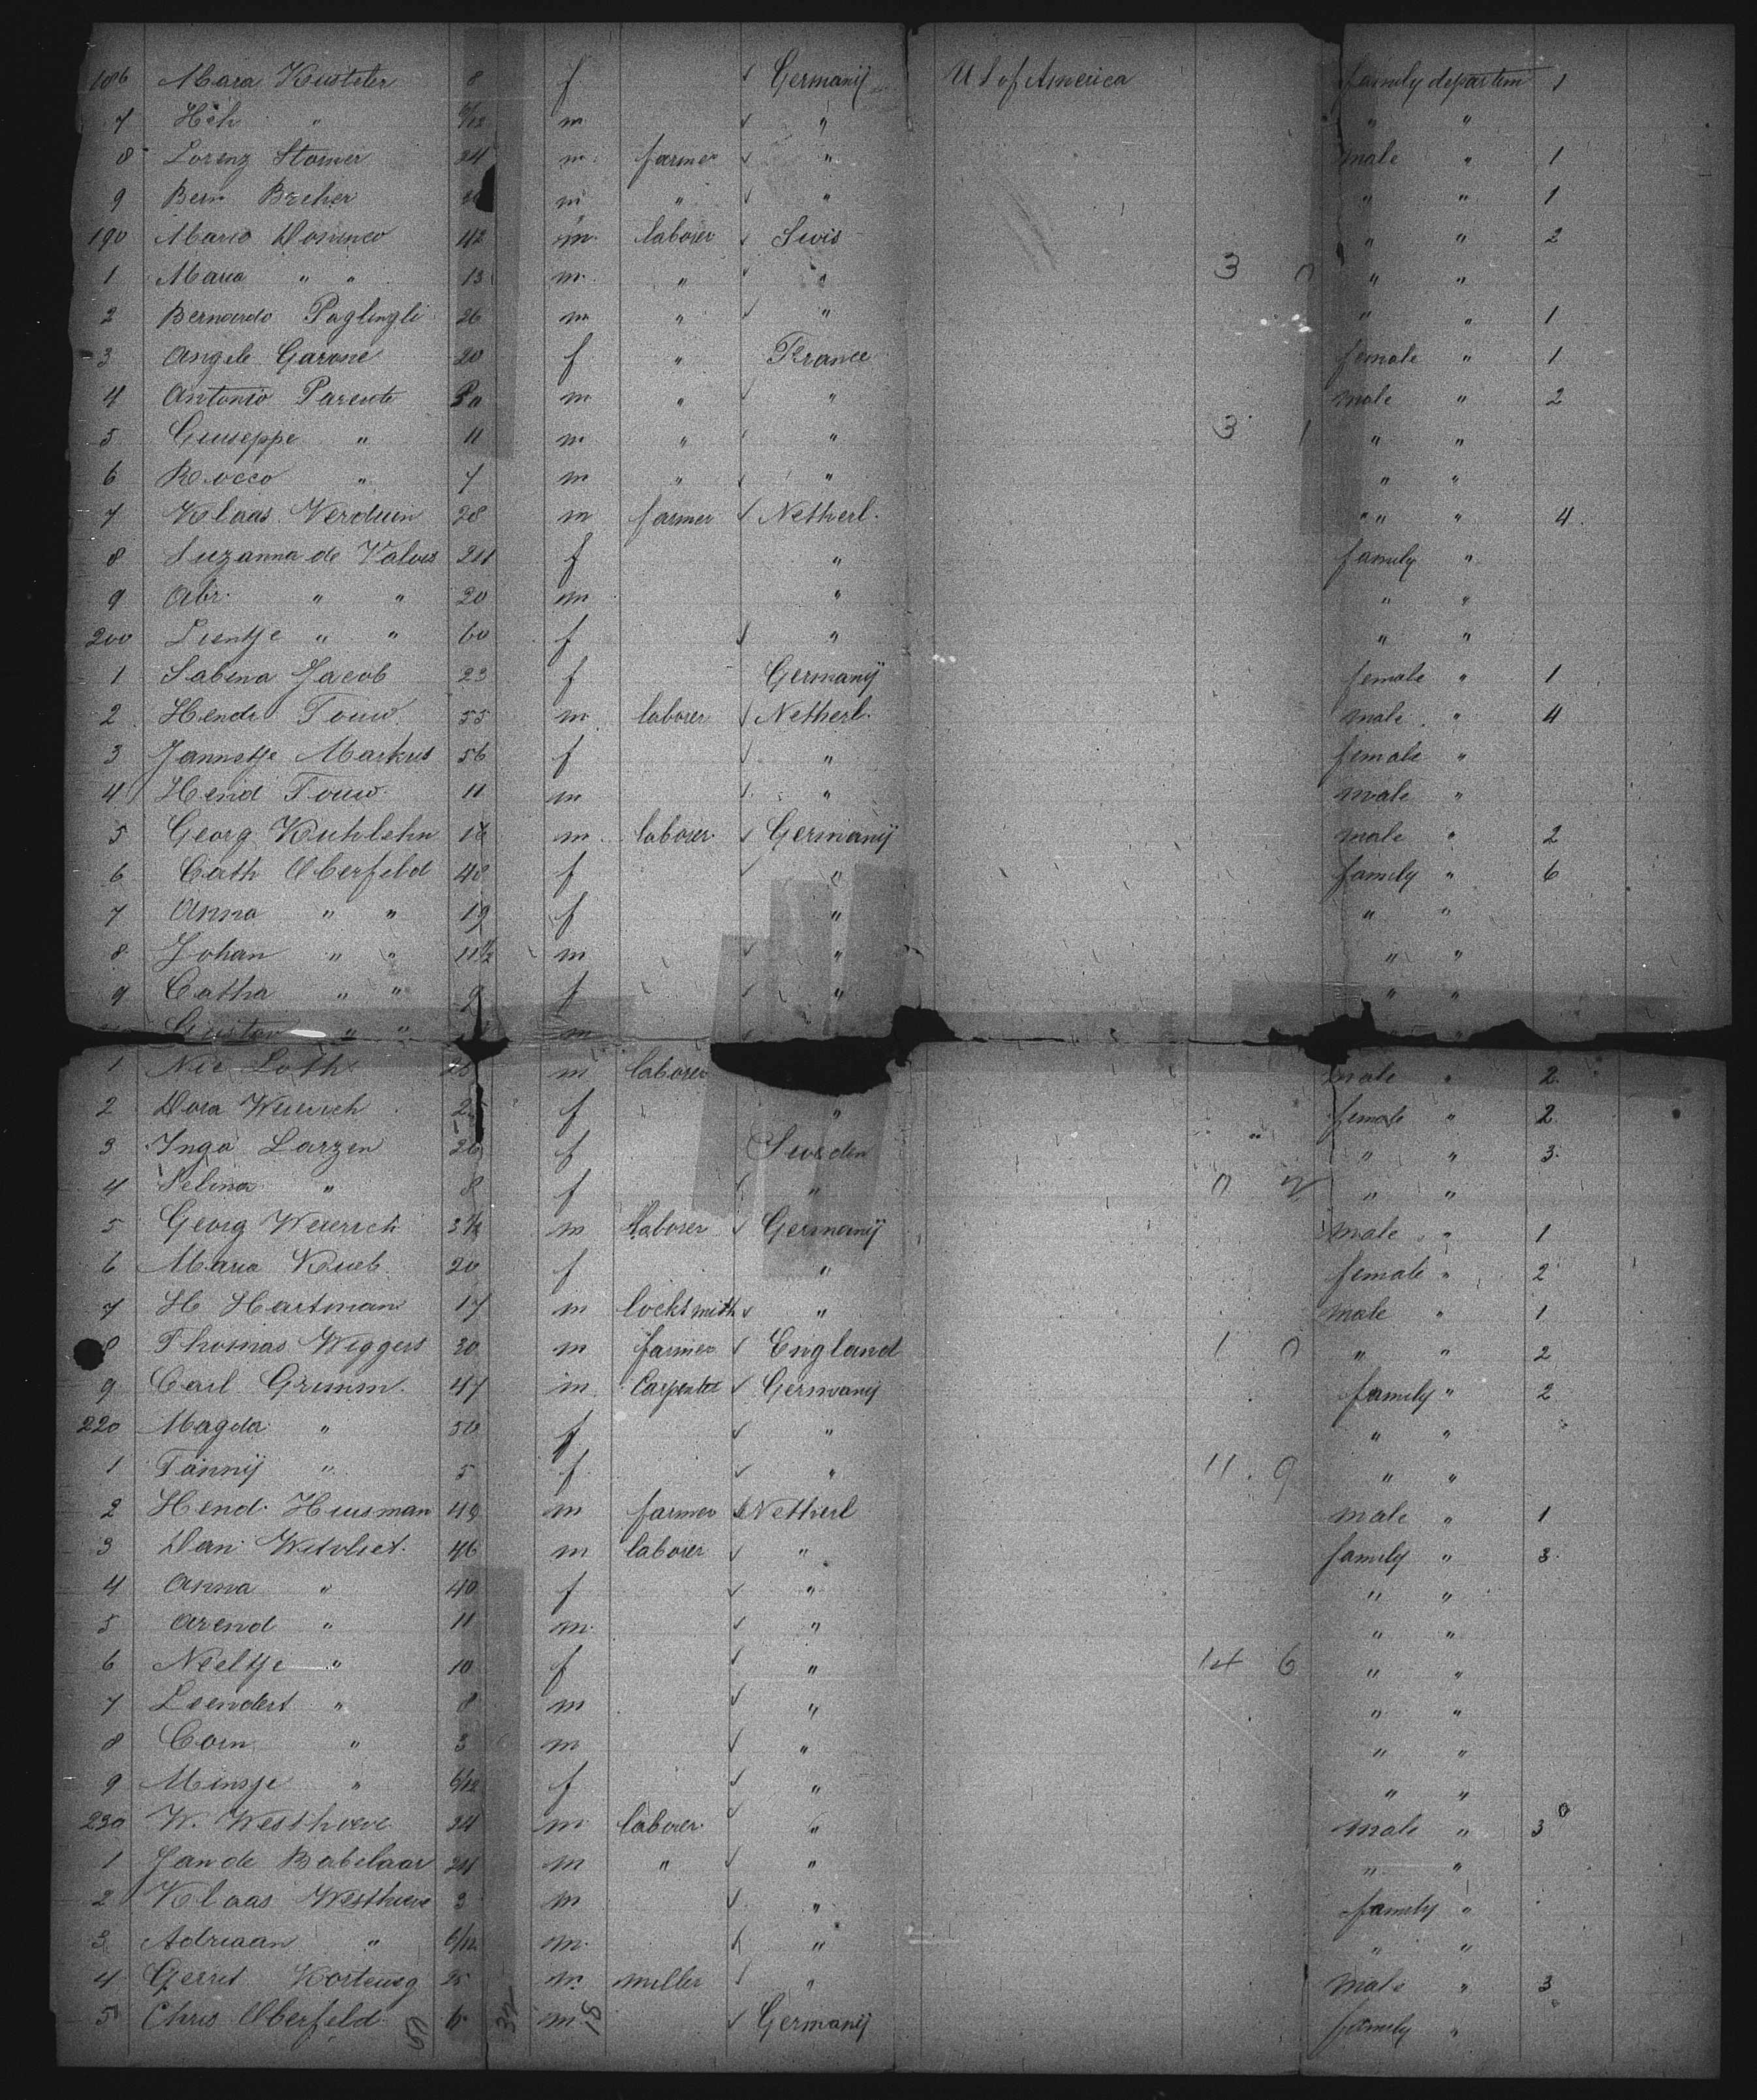 186 Maria Kusteter 8 f ✓ Germanÿ U S of America family departem 1
7 Hch " 6/12 m ✓ " " "
8 Lorenz Stomer 24 m farmer ✓ " male " 1
9 Bern Brcher m " ✓ " " " 1
190 Mario Dominco 42 m laborer ✓ Swis " " 2
1 Maria " " 13 m " ✓ " 3 0 " "
2 Bernardo Paglingli 26 m " ✓ " " " 1
3 Angele Garone 20 f " France female " 1
4 Antonio Parente m " ✓ " male " 2
5 Giuseppe " 11 m " ✓ " 3 1 " "
6 Rocco " 7 m " ✓ " " "
7 Klaas Verduin 28 m farmer ✓ Netherl. " " " 4
8 Suzanna de Valois 24 f " family "
9 Abr. " " 20 m " " "
200 Lientje " " 60 f ✓ " " "
1 Sabina Jacob 23 f Germanÿ female " 1
2 Hendr Touw 55 m laborer ✓ Netherl. male " 4
3 Jannetje Markus 56 f ✓ " female "
4 Hend Touw 11 m ✓ " male "
5 Georg Kuhlehn m laborer ✓ Germanÿ male " 2
6 Cath Oberfeld 48 f ✓ " family " 6
7 Anna " " 19 f " " "
8 Johan " " 11½ m ✓ " " "
9 Catha " " 9 f ✓ " " "
Gustav " " m
1 Nic Loth m laborer male " 2
2 Dora Weurich 25 f " female " 2
3 Inga Larzen 26 f Sweden " " " 3
4 Selina " 8 f ✓ " 0 2 " "
5 Georg Weurich m laborer ✓ Germanÿ male " 1
6 Maria Kueb 20 f " female " 2
7 H Hartman 17 m locksmith ✓ " male " 1
8 Thomas Wiggers 30 m farmer ✓ England 1 0 " " 2
9 Carl Grimm 47 m Carpenter ✓ Germanÿ family " 2
220 Magda " 50 f ✓ " " "
1 Fannÿ " 5 f ✓ " 11 9 " "
2 Hend. Huisman 49 m farmer ✓ Netherl male " 1
3 Dan Witvliet 46 m laborer ✓ " family " 3
4 Anna " 40 f ✓ " " "
5 Arend " 11 m ✓ " " "
6 Neeltje " 10 f ✓ " 14 6 " "
7 Leendert " 8 m ✓ " " "
8 Corn " 3 m ✓ " " "
9 Minsje " 6/12 f ✓ " " "
230 W. Westhoeve 24 m laborer ✓ " male " 3
1 Jan de Babelaar 24 m " ✓ " " "
2 Klaas Westhoeve 3 m ✓ " family "
3 Adriaan " 6/12 m ✓ " " "
4 Gerrit Korteweg 25 m miller ✓ " male " 3
5 Chris Oberfeld 6 m ✓ Germanÿ family "
32 18